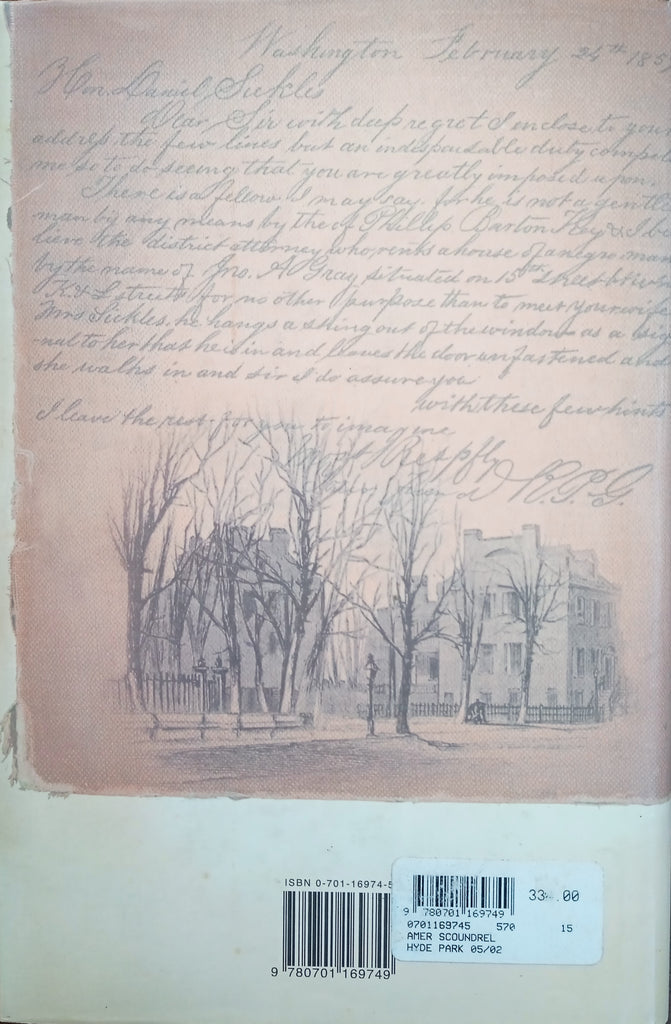 Washington February 24th 185
Hon. Daniel Sickles
Dear Sir with deep regret I enclose to your
address the few lines but an indispensable duty compels
me so to do seeing that you are greatly imposed upon.
There is a fellow I may say, for he is not a gentle
man by any means by the of Phillip Barton Key & I be
lieve the district attorney who rents a house of a negro man
by the name of Jno. A Gray situated on 15th Street btw
K & L streets for no other purpose than to meet your wife
Mrs Sickles. he hangs a string out of the window as a sig
-nal to her that he is in and leaves the door unfastened and
she walks in and sir I do assure you
with these few hints
I leave the rest for you to imagine
Most Respfly
R.P.G.
ISBN 0-701-16974-5
9 780701 169749
33 .00
9 780701 169749
0701169745 570 15
AMER SCOUNDREL
HYDE PARK 05/02